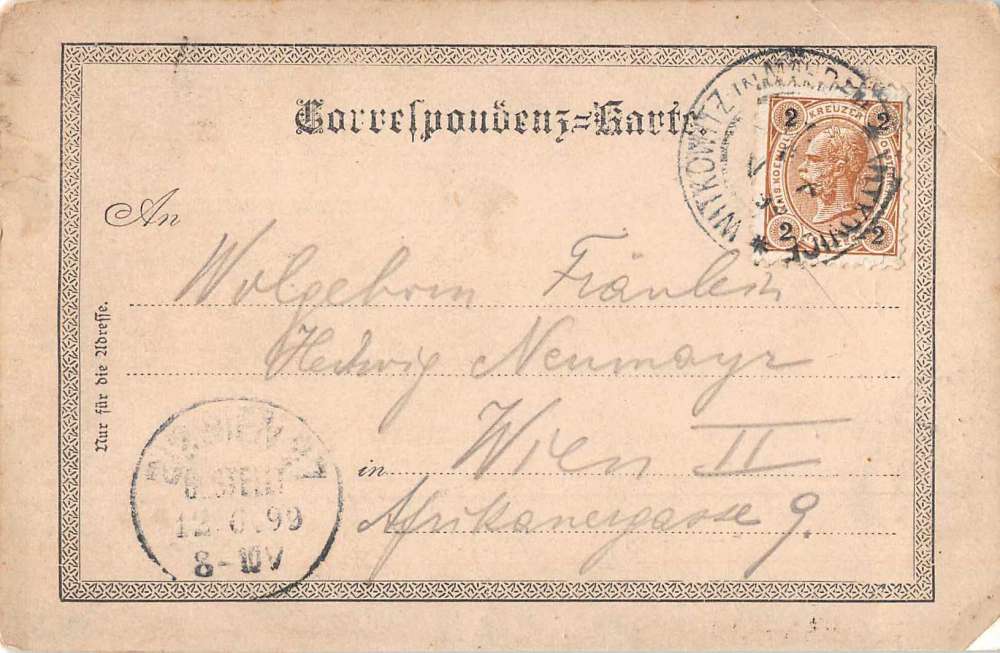 Correspondenz-Karte
WITKOWITZ IN MÄHREN * VITKOVICE *
2 KREUZER 2
2 2
An
Wolgeborn Fräulein
Hedwig Neumayr
in Wien II
Afrikanergasse 9.
Nur für die Adresse.
BESTELLT
12.6.99
8-10V